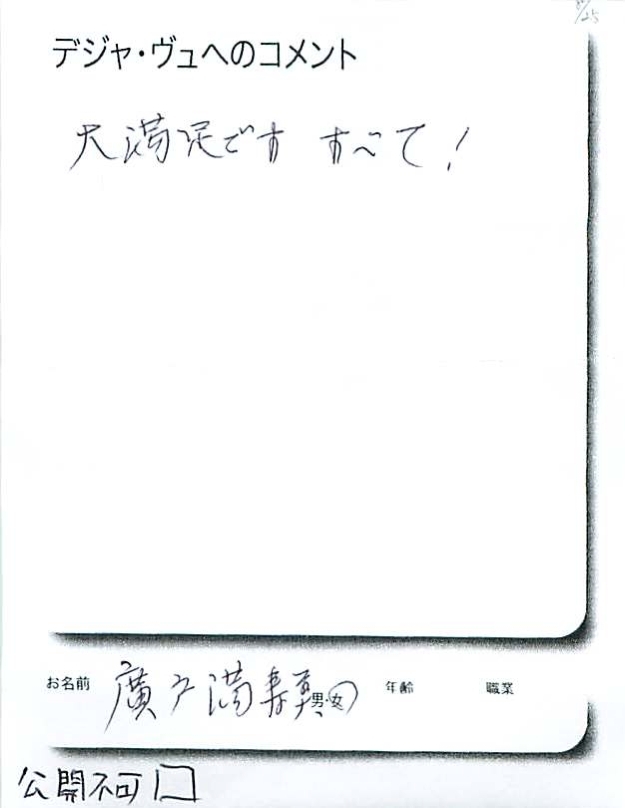 /25
デジャ・ヴュへのコメント
大満足です すべて!
お名前 廣戸満寿 男・女 年齢 職業
公開不可 □